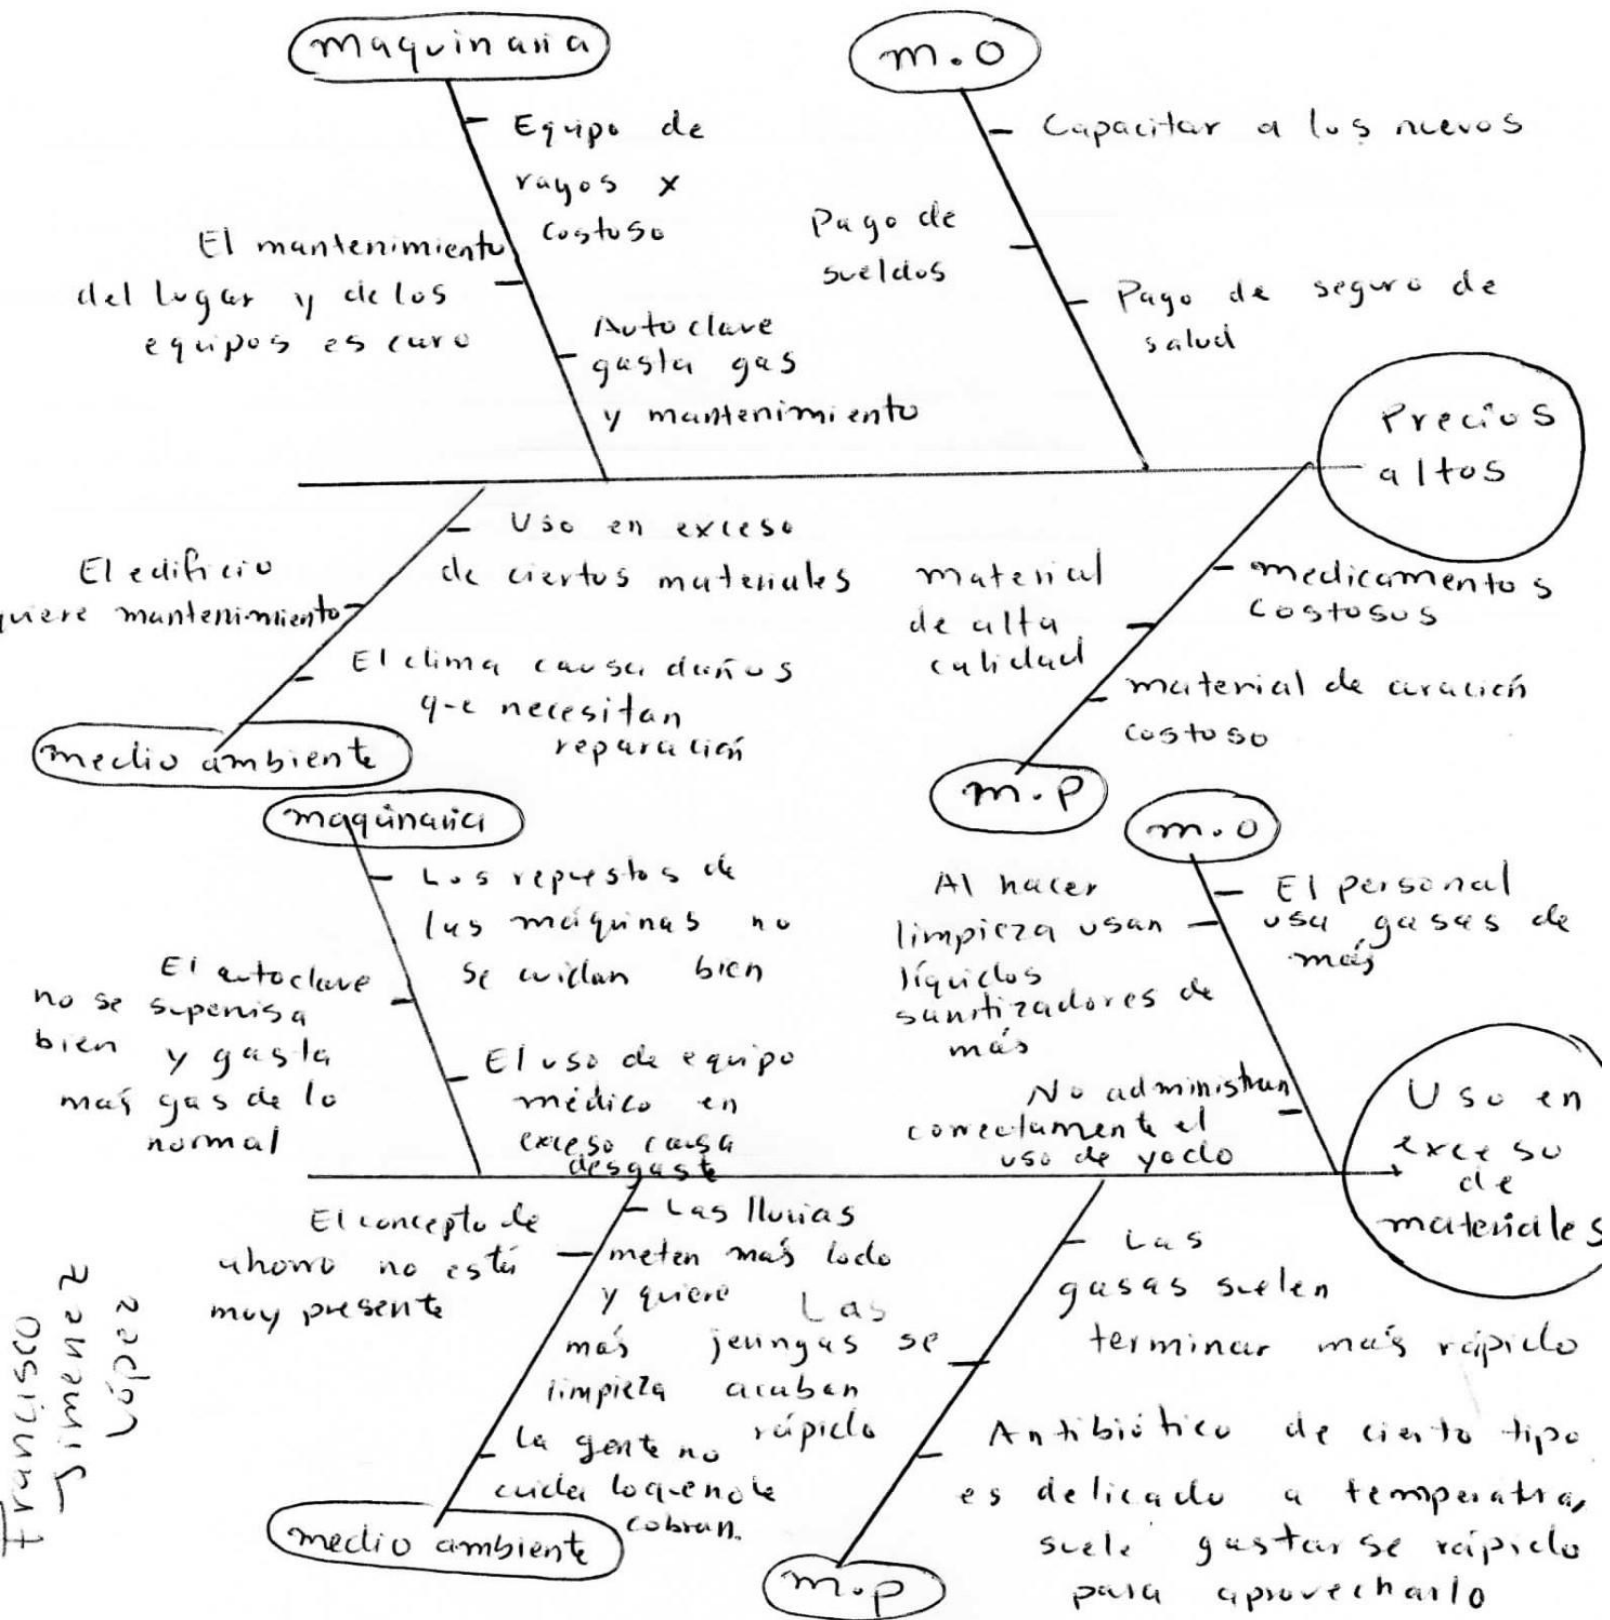 maquinaria
Equipo de
rayos x
costoso
El mantenimiento
del lugar y de los
equipos es caro
Autoclave
gasta gas
y mantenimiento
m.o
Capacitar a los nuevos
Pago de
sueldos
Pago de seguro de
salud
Precios
altos
Uso en exceso
de ciertos materiales
El edificio
quiere mantenimiento
El clima causa daños
que necesitan
reparación
medio ambiente
material
de alta
calidad
medicamentos
costosos
material de curación
costoso
m.p
maquinaria
Los repuestos de
las máquinas no
se cuidan bien
El autoclave
no se supervisa
bien y gasta
mas gas de lo
normal
El uso de equipo
médico en
exceso causa
desgaste
m.o
Al hacer
limpieza usan
líquidos
sanitizadores de
más
El personal
usa gasas de
más
No administran
correctamente el
uso de yodo
Uso en
exceso
de
materiales
El concepto de
ahorro no está
muy presente
Las lluvias
meten más lodo
y quiere
más
limpieza
La gente no
cuida lo que no le
cobran.
medio ambiente
Las
jeringas se
acaban
rápido
Las
gasas suelen
terminar más rápido
Antibiótico de cierto tipo
es delicado a temperatura,
suele gastarse rápido
para aprovecharlo
m.p
Francisco
Jimenez
López